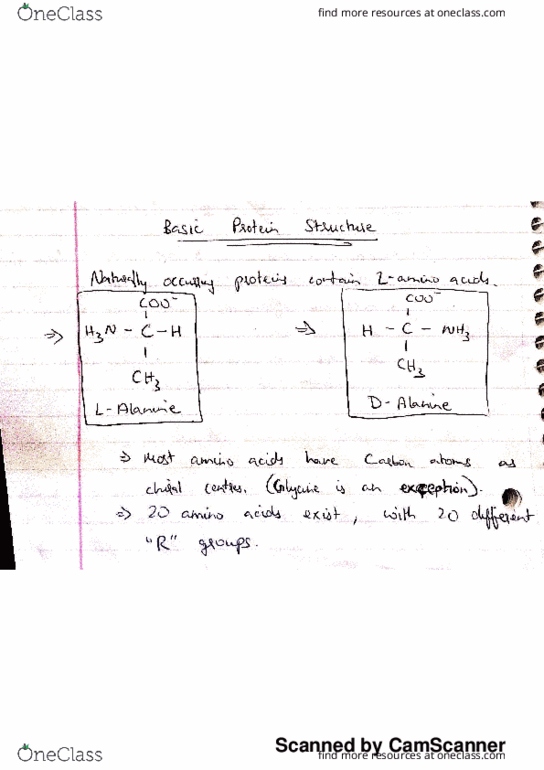 OneClass
find more resources at oneclass.com
Basic Protein Structure
Naturally occurring proteins contain L-amino acids.
COO⁻
|
⇒ H₃N - C - H
|
CH₃
L-Alanine
COO⁻
|
⇒ H - C - NH₃
|
CH₃
D-Alanine
⇒ Most amino acids have Carbon atoms as
chiral centres. (Glycine is an exception).
⇒ 20 amino acids exist, with 20 different
"R" groups.
Scanned by CamScanner
OneClass
find more resources at oneclass.com